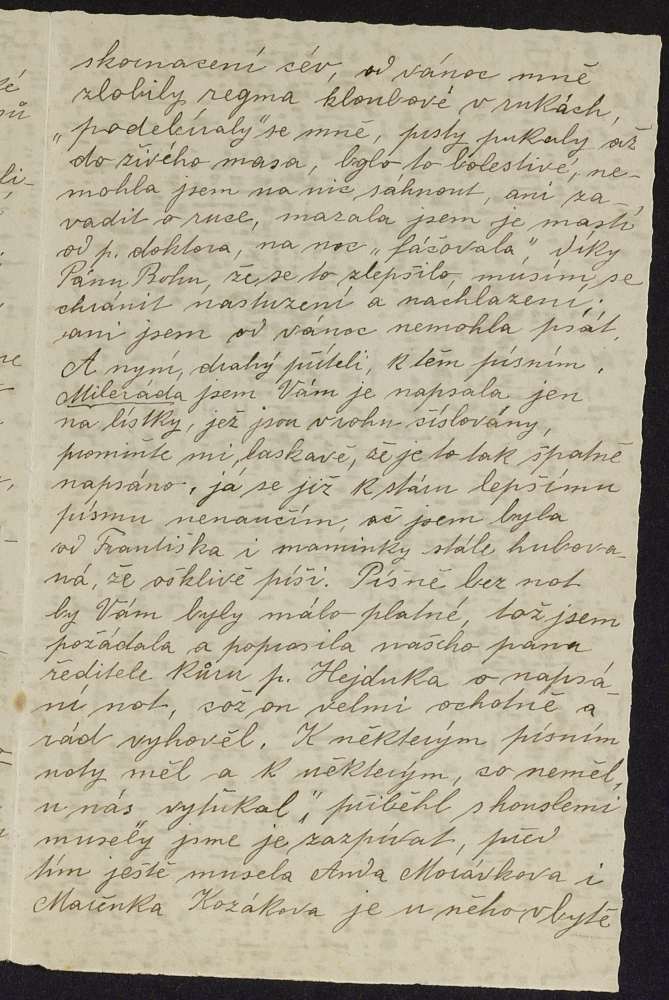 skornacení cév, od vánoc mně
zlobily regma kloubové v rukách,
„podebíraly" se mně, prsty pukaly až
do živého masa, bylo to bolestivé, ne-
mohla jsem na nic sáhnout, ani za-
vadit o ruce, mazala jsem je mastí
od p. doktora, na noc „fášovala", díky
Pánu Bohu, že se to zlepšilo, musím se
chránit nastuzení a nachlazení;
ani jsem od vánoc nemohla psát.
A nyní, drahý příteli, k těm písním,
Mileráda jsem Vám je napsala jen
na lístky, jež jsou v rohu číslovány,
promiňte mi, laskavě, že je to tak špatně
napsáno, já se již k stáru lepšímu
písmu nenaučím, ač jsem byla
od Františka i maminky stále hubova-
ná, že ošklivě píši. Písně bez not
by Vám byly málo platné, tož jsem
požádala a poprosila našeho pana
ředitele kůru p. Hejduka o napsá-
ní not, což on velmi ochotně a
rád vyhověl. K některým písním
noty měl a k některým, co neměl,
u nás „vyťukal", přiběhl s houslemi
musely jsme je zazpívat, před
tím ještě musela Anda Morávkova i
Mařenka Kozákova je u něho v bytě